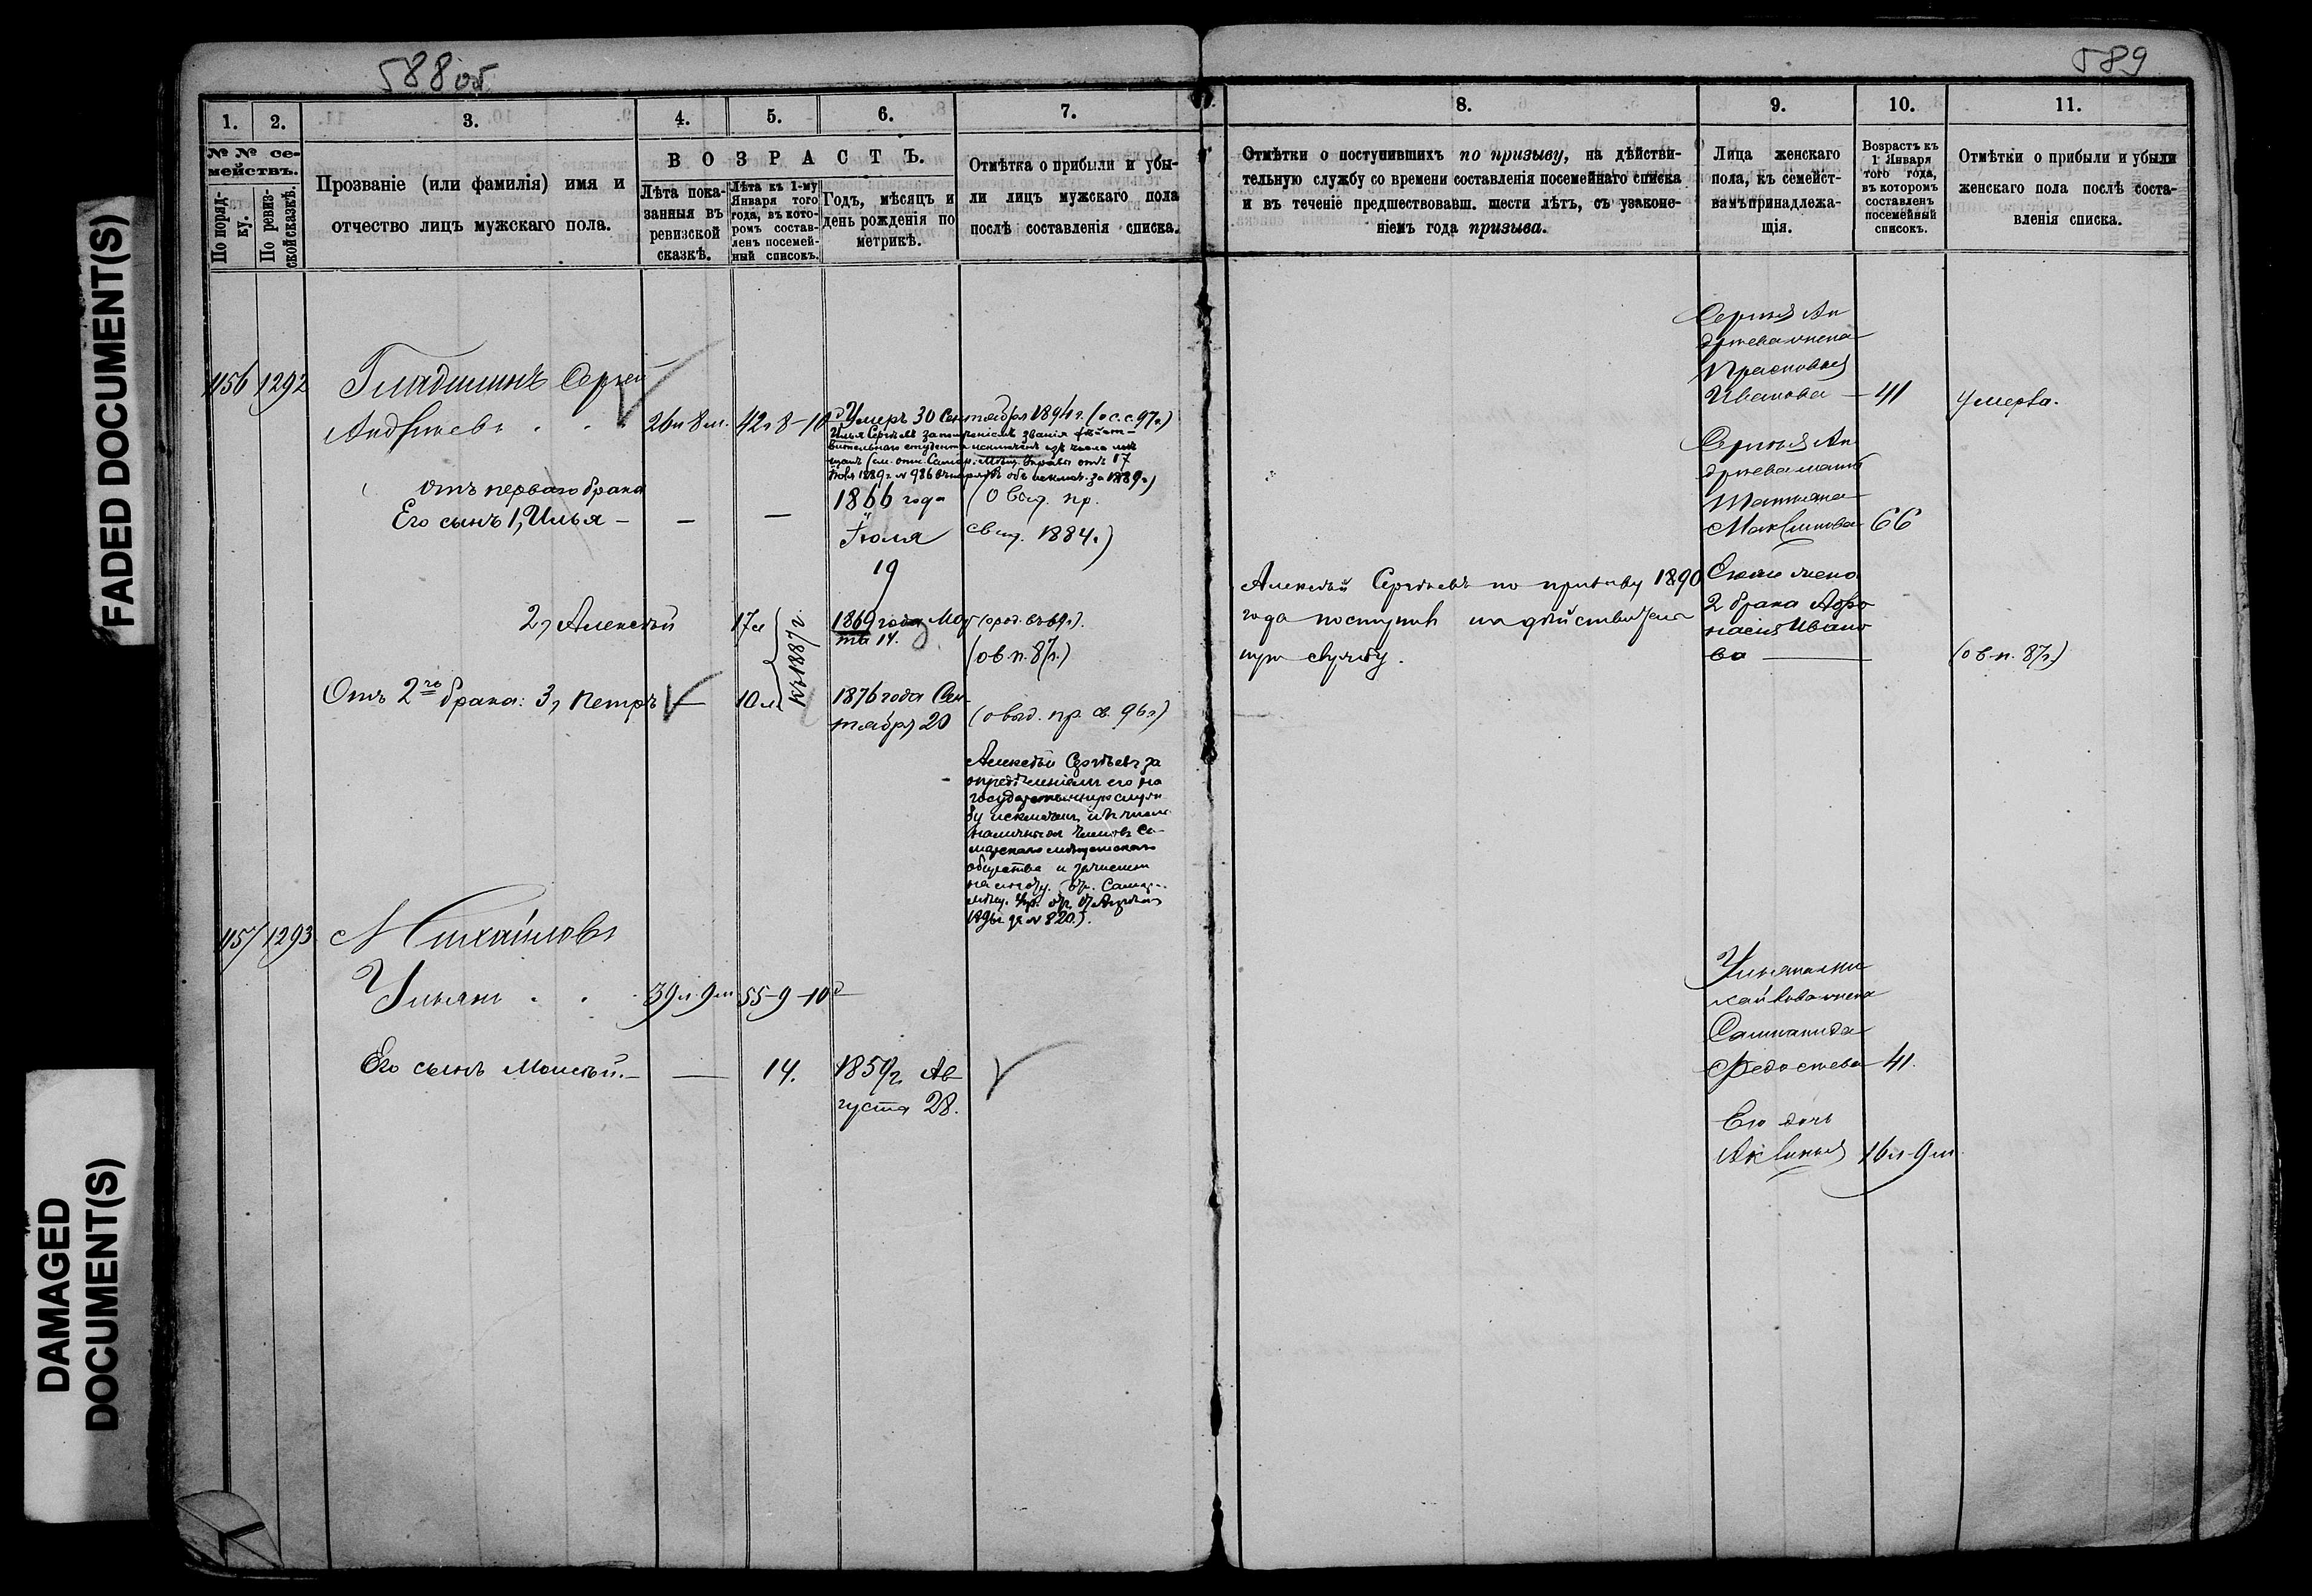 FADED DOCUMENT(S)
DAMAGED
DOCUMENT(S)
588 об.
1.
2.
3.
4.
5.
6.
7.
№ № се-
мействъ.
По поряд-
ку.
По ревиз-
ской сказкѣ.
Прозваніе (или фамилія) имя и
отчество лицъ мужскаго пола.
ВОЗРАСТЪ.
Лѣта пока-
занныя въ
ревизской
сказкѣ.
Лѣта къ 1-му
Января того
года, въ кото-
ромъ состав-
ленъ посемей-
ный списокъ.
Годъ, мѣсяцъ и
день рожденія по
метрикѣ.
Отмѣтка о прибыли и убы-
ли лицъ мужскаго пола
послѣ составленія списка.
1156 1292 Гладилинъ Сергей
Андреевъ . . 26л 8м. 42л 8-10д Умеръ 30 Сентября 1894г. (о с.с. 97г)
Илья Сергѣевъ за полученіемъ званія дѣйст-
вительнаго студента исключенъ изъ числа мѣ-
щанъ (см. отн. Самар. Мѣщ. Управы отъ 17
Ноя 1889г. № 986 об исключ. за 1889г)
отъ перваго брака
Его сынъ 1, Илья - - - 1866 года (о выд. пр.
Іюля свид. 1884.)
19
2, Алексѣй 17л 1869 года Мар (о род. въ 69г).
та 14.
(о в. п. 87г.)
къ 1887г.
Отъ 2го брака: 3, Петръ - 10л 1876 года Сен-
тября 20 (о выд. пр. св. 96г)
Алексѣй Сергѣевъ за
опредѣленіемъ его на
государственную служ-
бу исключенъ изъ числа
наличныхъ членовъ Са-
марскаго мѣщанскаго
общества
1157 1293 Михайловъ
Ульянъ . . 39л. 9м 55-9-10д
Его сынъ Моисей. - - 14. 1859г. Ав-
густа 28.
589
8.
9.
10.
11.
Отмѣтки о поступившихъ по призыву, на дѣйстви-
тельную службу со времени составленія посемейнаго списка
и въ теченіе предшествовавш. шести лѣтъ, съ узаконе-
ніемъ года призыва.
Лица женскаго
пола, къ семейст-
вамъ принадлежа-
щія.
Возрастъ къ
1 Января
того года,
въ которомъ
составленъ
посемейный
списокъ.
Отмѣтки о прибыли и убыли
женскаго пола послѣ соста-
вленія списка.
Сергея Ан
дреева жена
Прасковья
Иванова - 41 умерла.
Сергея Ан
дреева мать
Татьяна
Максимова 66
Алексѣй Сергѣевъ по призыву 1890
года поступилъ на дѣйствитель
ную службу.
Его жена
2 брака Афа
насія Ивано
ва (о в. п. 87г.)
Ульяна Ми
хайлова жена
Саломанида
Федосѣева - 41.
Его дочь
Аксинья 16л-9м.